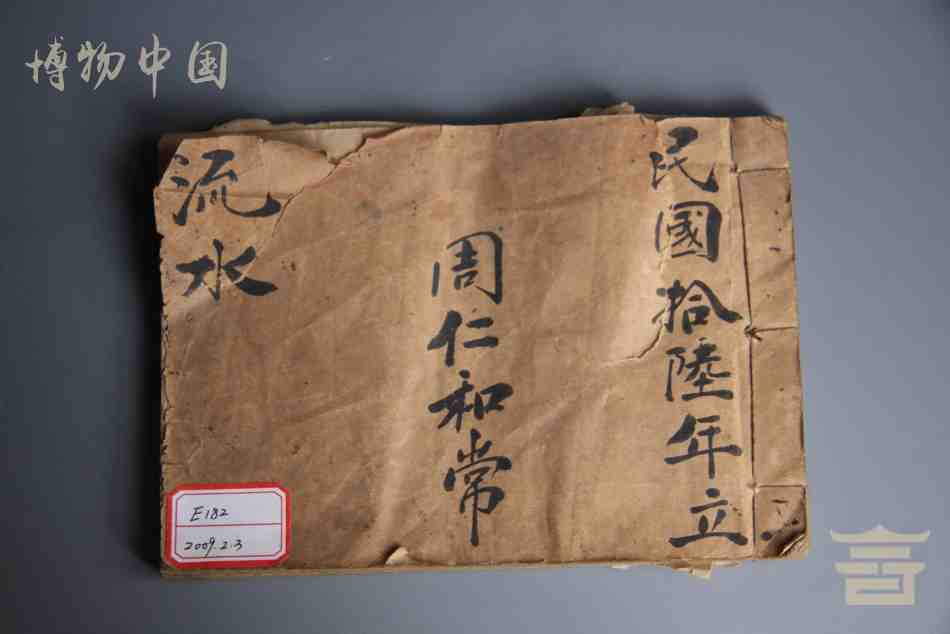 博物中国
民國拾陸年立
周仁和常
流水
E182
2009.2.3